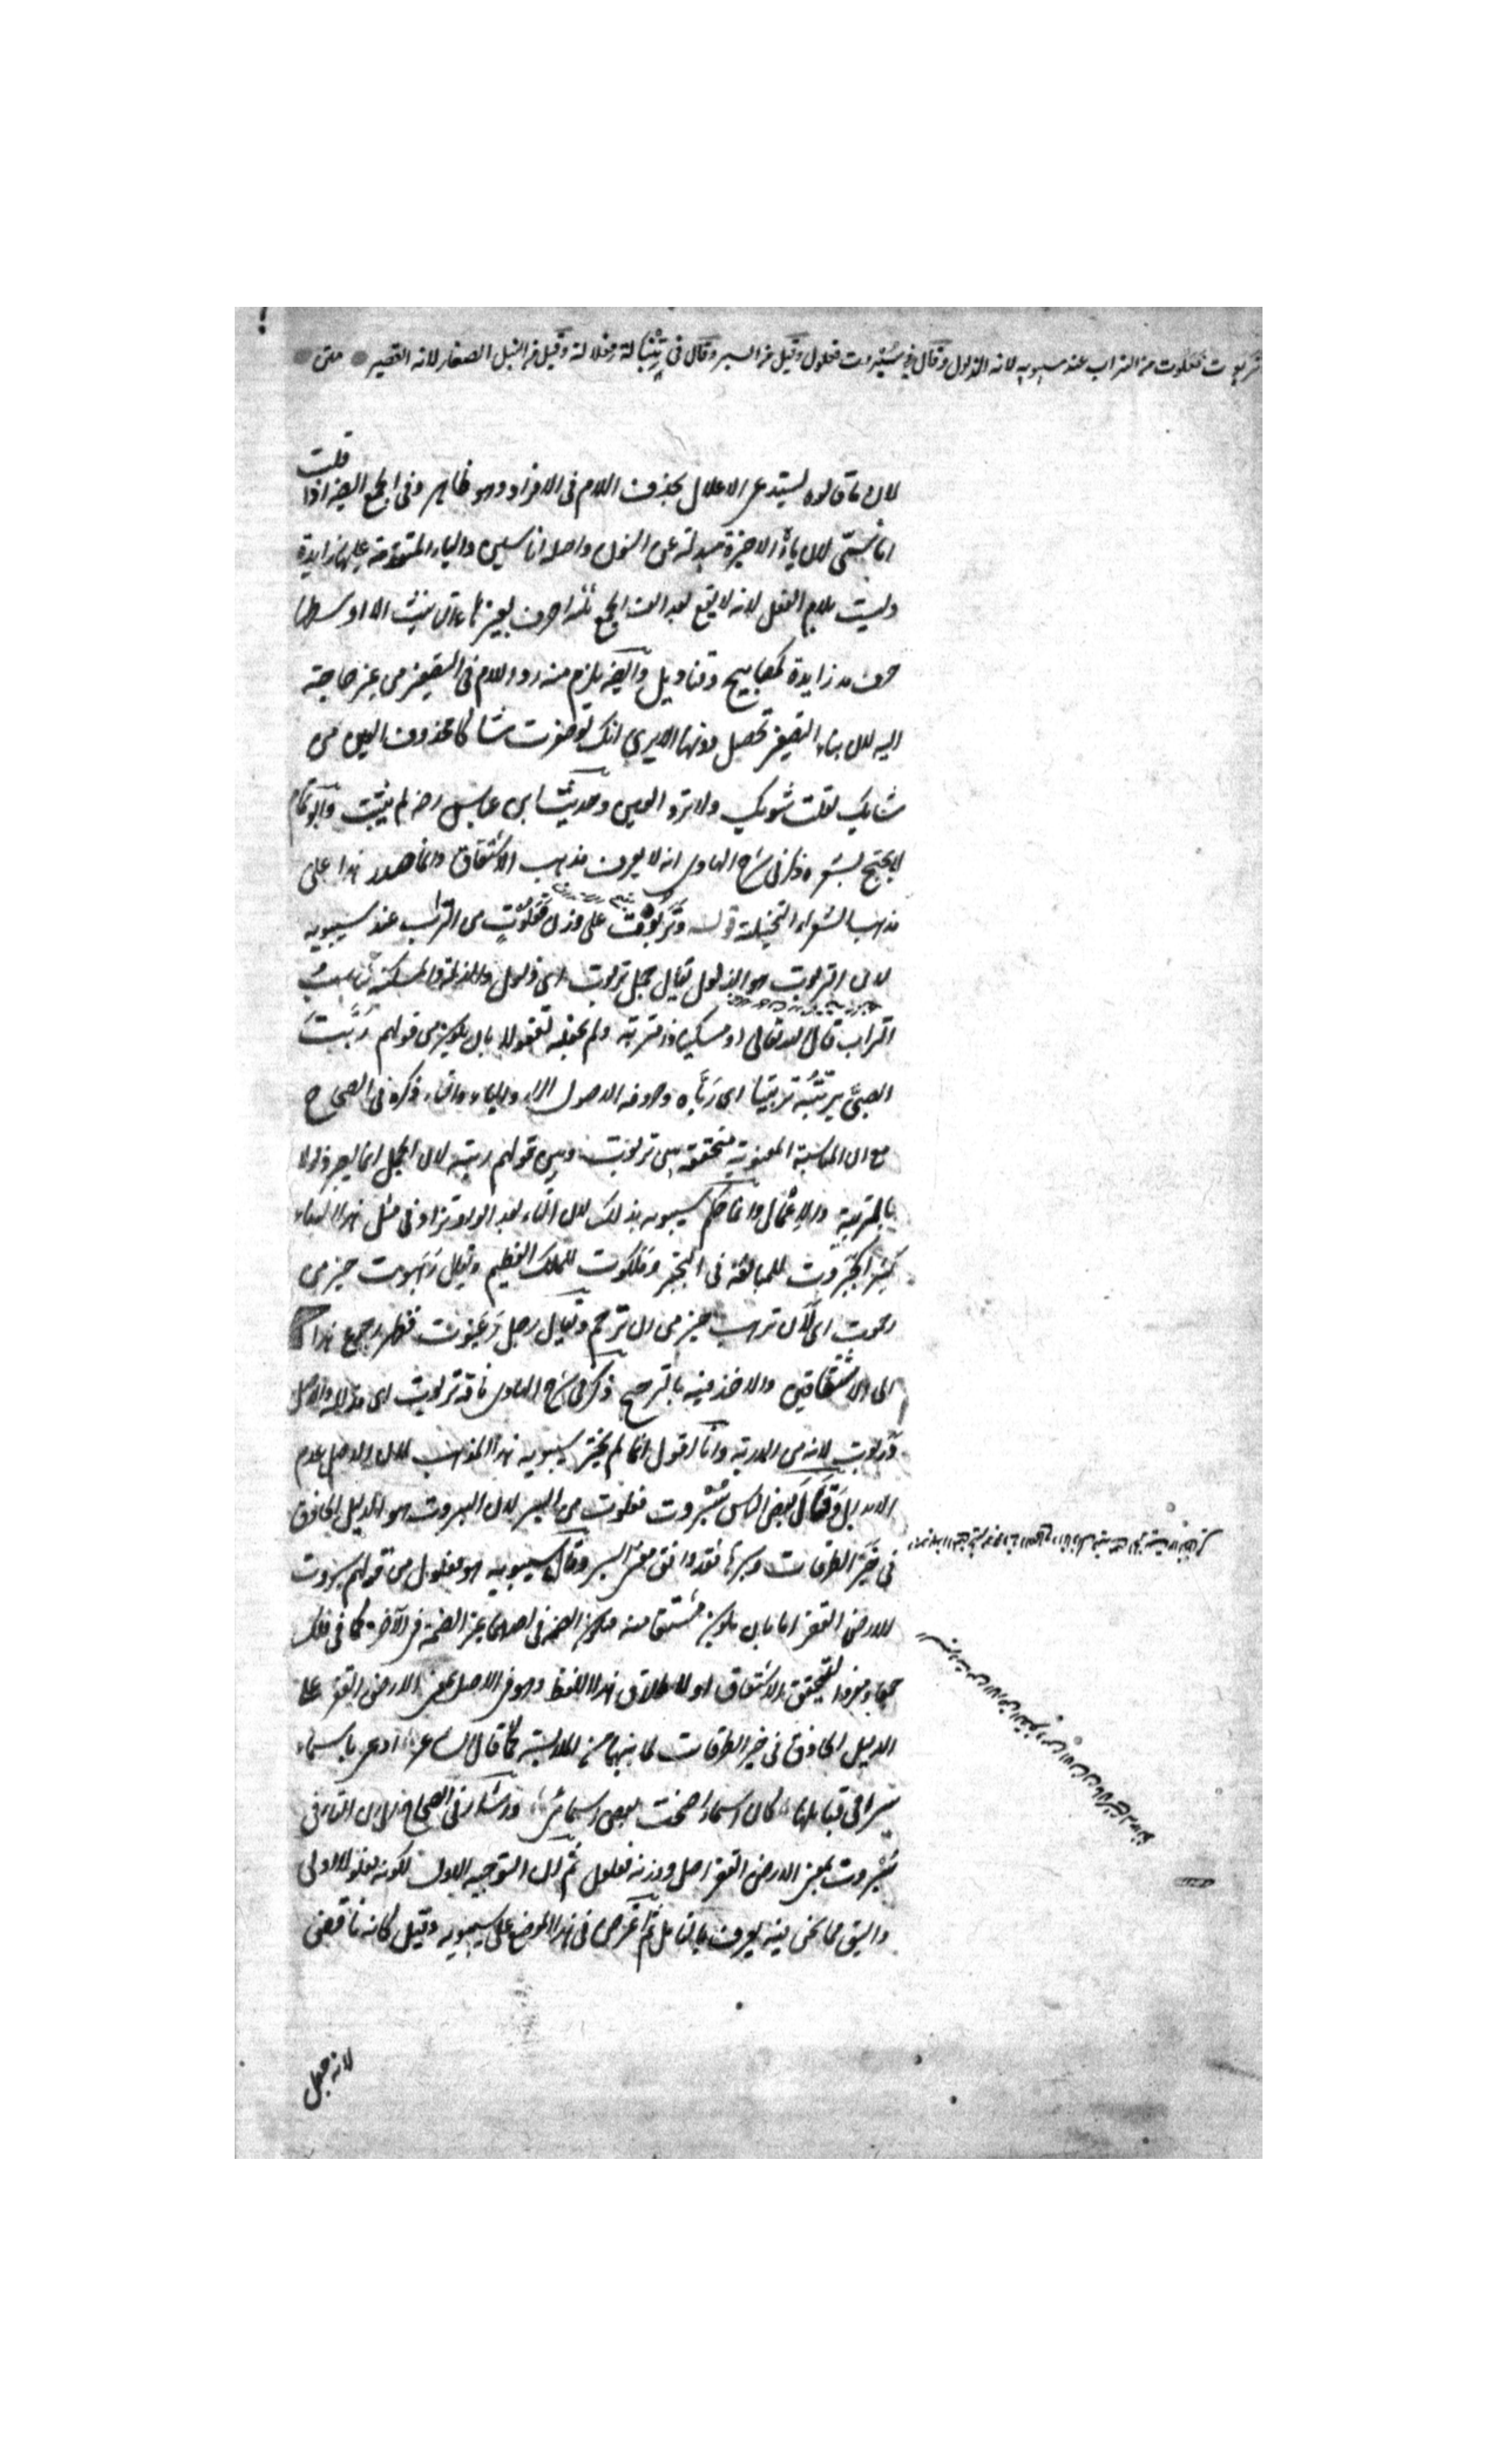 تَرَبوت فَعَلوت من التراب عند سيبويه لانه الذلول وقال في سُبْروت فعلول وقيل من السبر وقال في تِنْبالة فعلالة وقيل من النبل الصغار لانه القصير متن
لان ما قالوه يستدعى الاعلال بحذف اللام فى الافراد وهو ظاهر وفى الجمع ايضا اذا قلت
اناسىّ لان ياؤه الاخيرة مبدلة عن النون واصله اناسين والياء المتقدمة عليها زايدة
وليست بلام الفعل لانه لا يقع بعد الف الجمع ثلثة احرف بغير هاء التانيث الا اوسطها
حرف مد زايدة كمصابيح وقناديل وايضا يلزم منه رد اللام فى التصغير من غير حاجة
اليه لان بناء التصغير تحصل دونها الا يرى انك لو صغرت شاكا محذوف العين من
شايك لقلت شويك ولا ترد العين وحديث ابن عباس رضه لم يثبت وابو تمام
لا يحتج بشعره ذكر فى شرح الهادى انه لا يعرف مذهب الاشتقاق وانما صدر هذا على
مذهب الشعراء التخيلية قوله وتَرَبوت على وزن فَعَلوتٍ من التراب عند سيبويه
لان التربوت هو الذلول يقال جمل تربوت اى ذلول والذلة والمسكنة تناسب
التراب قال الله تعالى او مسكينا ذا متربة ولم يجعله تفعولا بان يكون من قولهم رَبَّتَ
الصبىَّ يربّتُه تربيتا اى رَبَّاه وحروفه الاصول الراء والباء والتاء ذكره فى الصحاح
مع ان المناسبة المعنوية متحققة بين تربوت وبين قولهم ربته لان الجمل انما يصير ذلولا
بالتربية والاعمال وانما حكم سيبويه بذلك لان التاء بعد الواو تزاد فى مثل هذا البناء
كثيرا كجبروت للمبالغة فى التجبر وملكوت للملك العظيم ويقال رَهَبوت خير من
رحموت اى لان ترهب خير من ان ترحم ويقال رجل رَغَبوت فظهر رجوع هذا
الى الاشتقاقين والاخذ فيه بالترجيح ذكر فى شرح الهادى ناقة تربوت اى مذللة والاصل
دربوت لانه من الدربة وانا اقول انما لم يختر سيبويه هذا المذهب لان الاصل عدم
الابدال وقال بعض الناس سُبْروت فعلوت من السبر لان السبروت هو الدليل الحاذق
فى خير الطرقات وسبرها فقد وافق معنى السبر وقال سيبويه هو فعلول من قولهم سبروت
للارض القفر اما بان يكون مشتقا منه ويكون الضمة فى احدهما غير الضمة فى الآخر كما فى فلك
جمعا ومفردا لتحقق الاشتقاق او لاطلاق هذا اللفظ وهو فى الاصل بمعنى الارض القفر على
الدليل الحاذق فى خير الطرقات لما بينهما من الملابسة كما قال الشاعر ادعى باسماء
نبزا فى قبايلها كان اسماء اضحت بعض اسمائى واشار فى الصحاح الى ان التاء فى
سُبْروت بمعنى الارض القفر اصل ووزنه فعلول ثم ان التوجيه الاول لكونه فعلولا اولى
واليق مما نحن فيه يعرف بالتامل ثم اعترض فى هذا الموضع على سيبويه وقيل كانه ناقض
لانه جعل